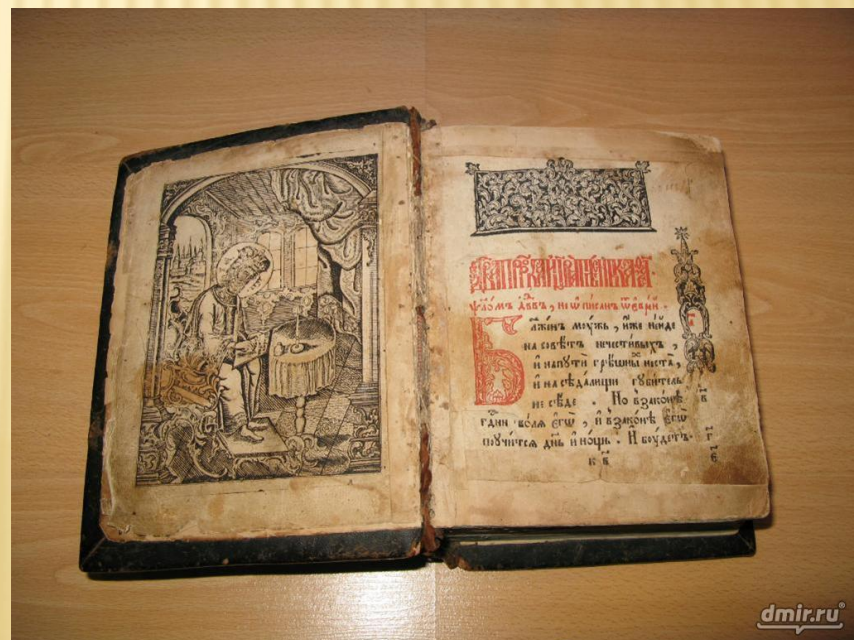 Ѱало́мъ дв҃дъ, не ѡ҆писанъ ѿ є҆врє́й.
Блаже́нъ моу́жь, и҆́же не и҆́де
на совѣ́тъ нечести́выхъ,
и҆ на путѝ грѣ́шны не ста̀,
и҆ на сѣда́лищи гу́битель
не сѣ́де. Но в̾ зако́нѣ
гдⷭ҇ни во́ля є҆гѡ̀, и҆ в̾ зако́нѣ є҆гѡ̀
поꙋчи́тсѧ дн҃ь и҆ но́щь. И҆ бо́удетъ
dmir.ru